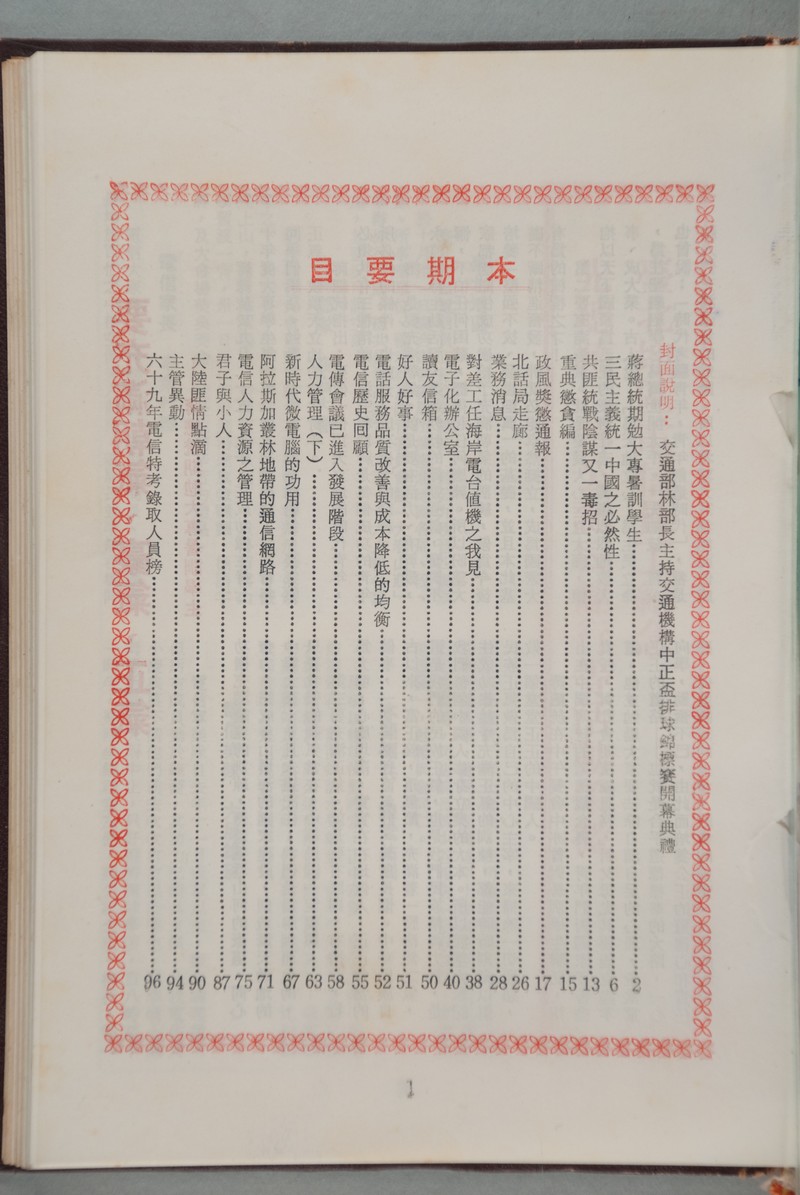 本期要目
封面說明：交通部林部長主持交通機構中正盃排球錦標賽開幕典禮
蔣總統期勉大專暑訓學生……2
三民主義統一中國之必然性……6
共匪統戰陰謀又一毒招……13
重典懲貪編……15
政風獎懲通報……17
北話局走廊……26
業務消息……28
對差工任海岸電台值機之我見……38
電子化辦公室……40
讀友信箱……50
好人好事……51
電話服務品質改善與成本降低的均衡……52
電信歷史回顧……55
電傳會議已進入發展階段……58
人力管理（下）……63
新時代微電腦的功用……67
阿拉斯加叢林地帶的通信網路……71
電信人力資源之管理……75
君子與小人……87
大陸匪情點滴……90
主管異動……94
六十九年電信特考錄取人員榜……96
1